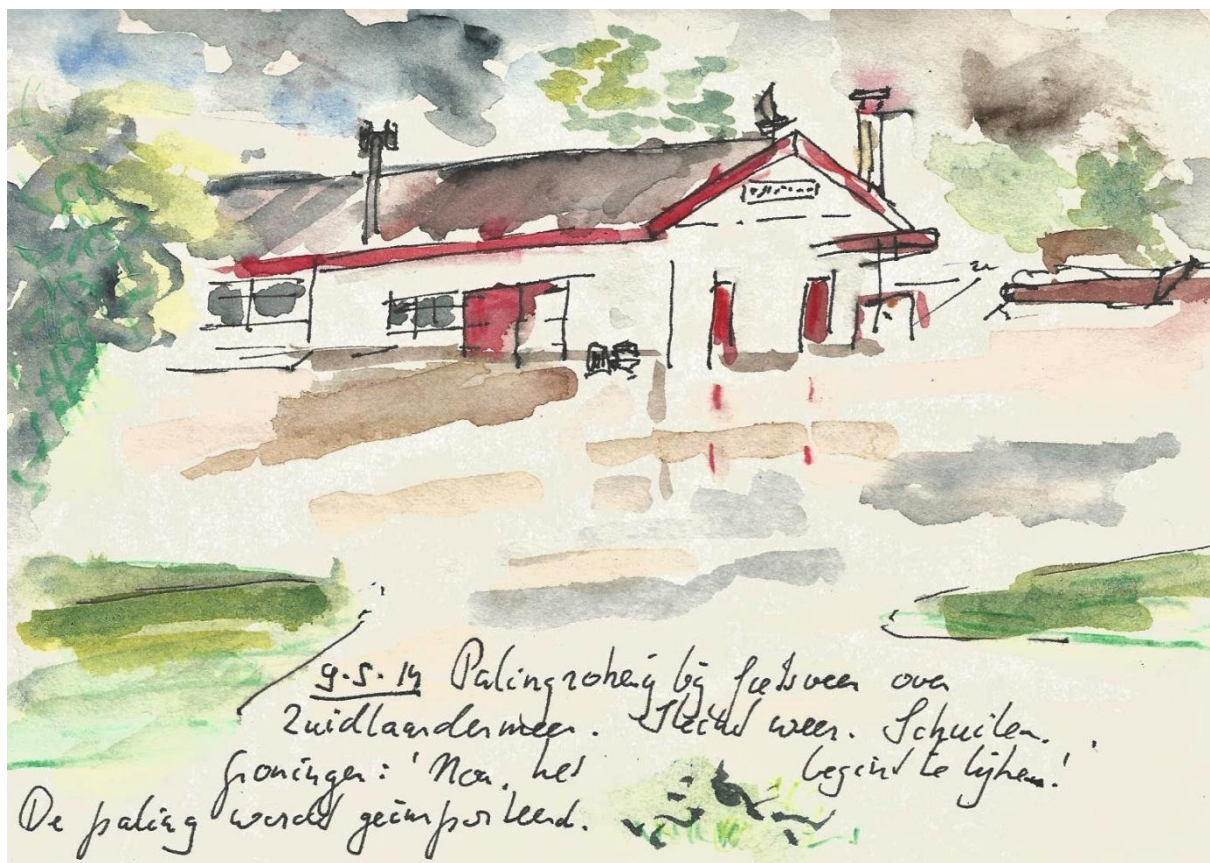 9.5.14 Palingrokerij bij fietsveer over
Zuidlaardermeer. Slecht weer. Schuilen.
Groninger: 'Nou, het begint te lijken!'
De paling wordt geïmporteerd.